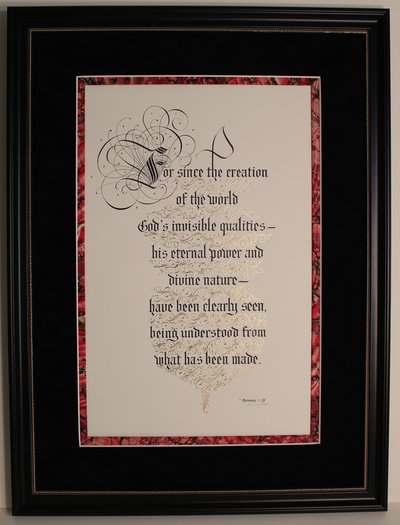 For since the creation
of the world
God's invisible qualities—
his eternal power and
divine nature—
have been clearly seen,
being understood from
what has been made.
Romans 1:20